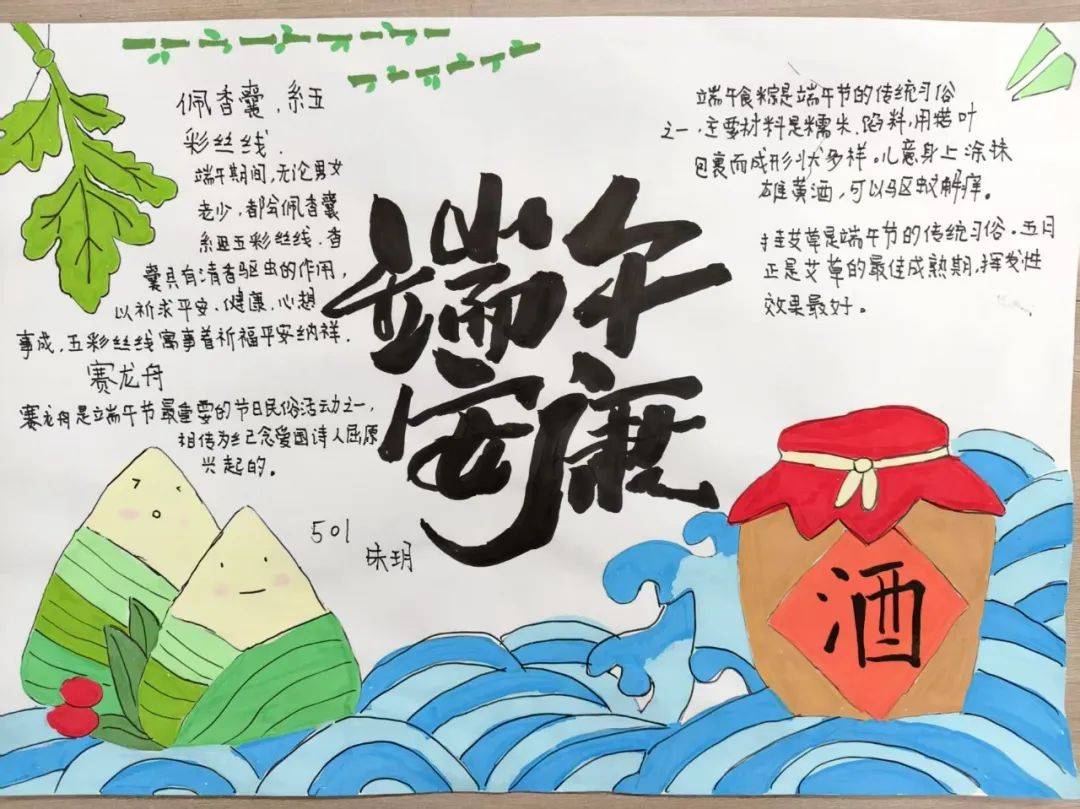 佩香囊，系五
彩丝线．
端午期间，无论男女
老少，都会佩香囊
系五彩丝线．香
囊具有清香驱虫的作用，
以祈求平安、健康、心想
事成．五彩丝线寓事着祈福平安纳祥．
赛龙舟
赛龙舟是端午节最重要的节日民俗活动之一，
相传为纪念爱国诗人屈原
兴起的。
端午
安康
501
朱玥
端午食粽是端午节的传统习俗
之一．主要材料是糯米、馅料，用箬叶
包裹而成形状多样。儿童身上涂抹
雄黄酒，可以驱蚊解痒。
挂艾草是端午节的传统习俗．五月
正是艾草的最佳成熟期，挥发性
效果最好。
酒